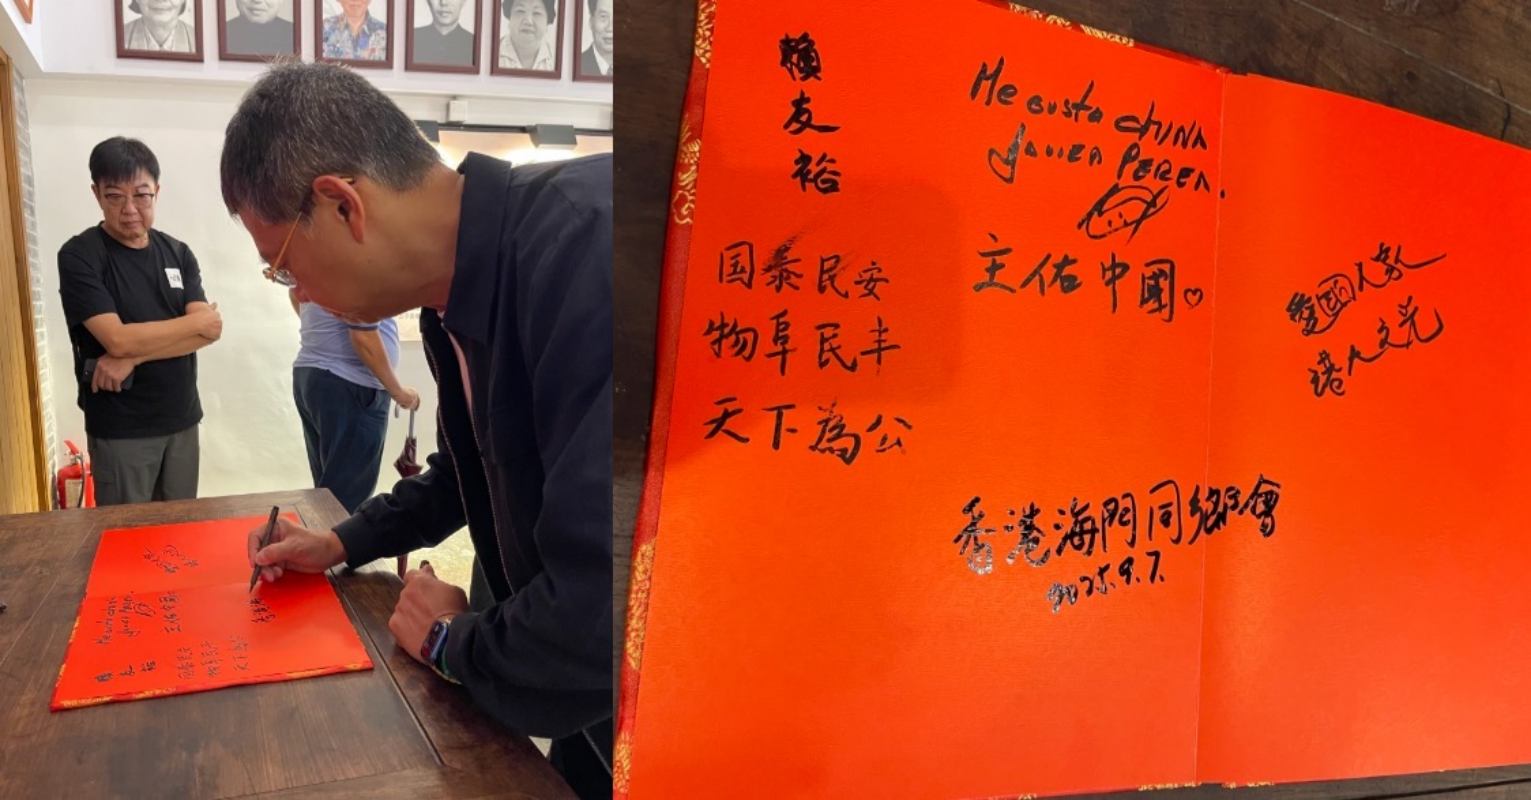 賴友裕
国泰民安
物阜民丰
天下為公
Me gusta CHINA
Javier PEREA.
主佑中國♡
愛國人敎
港人之光
香港海門同鄉會
2025.9.7.